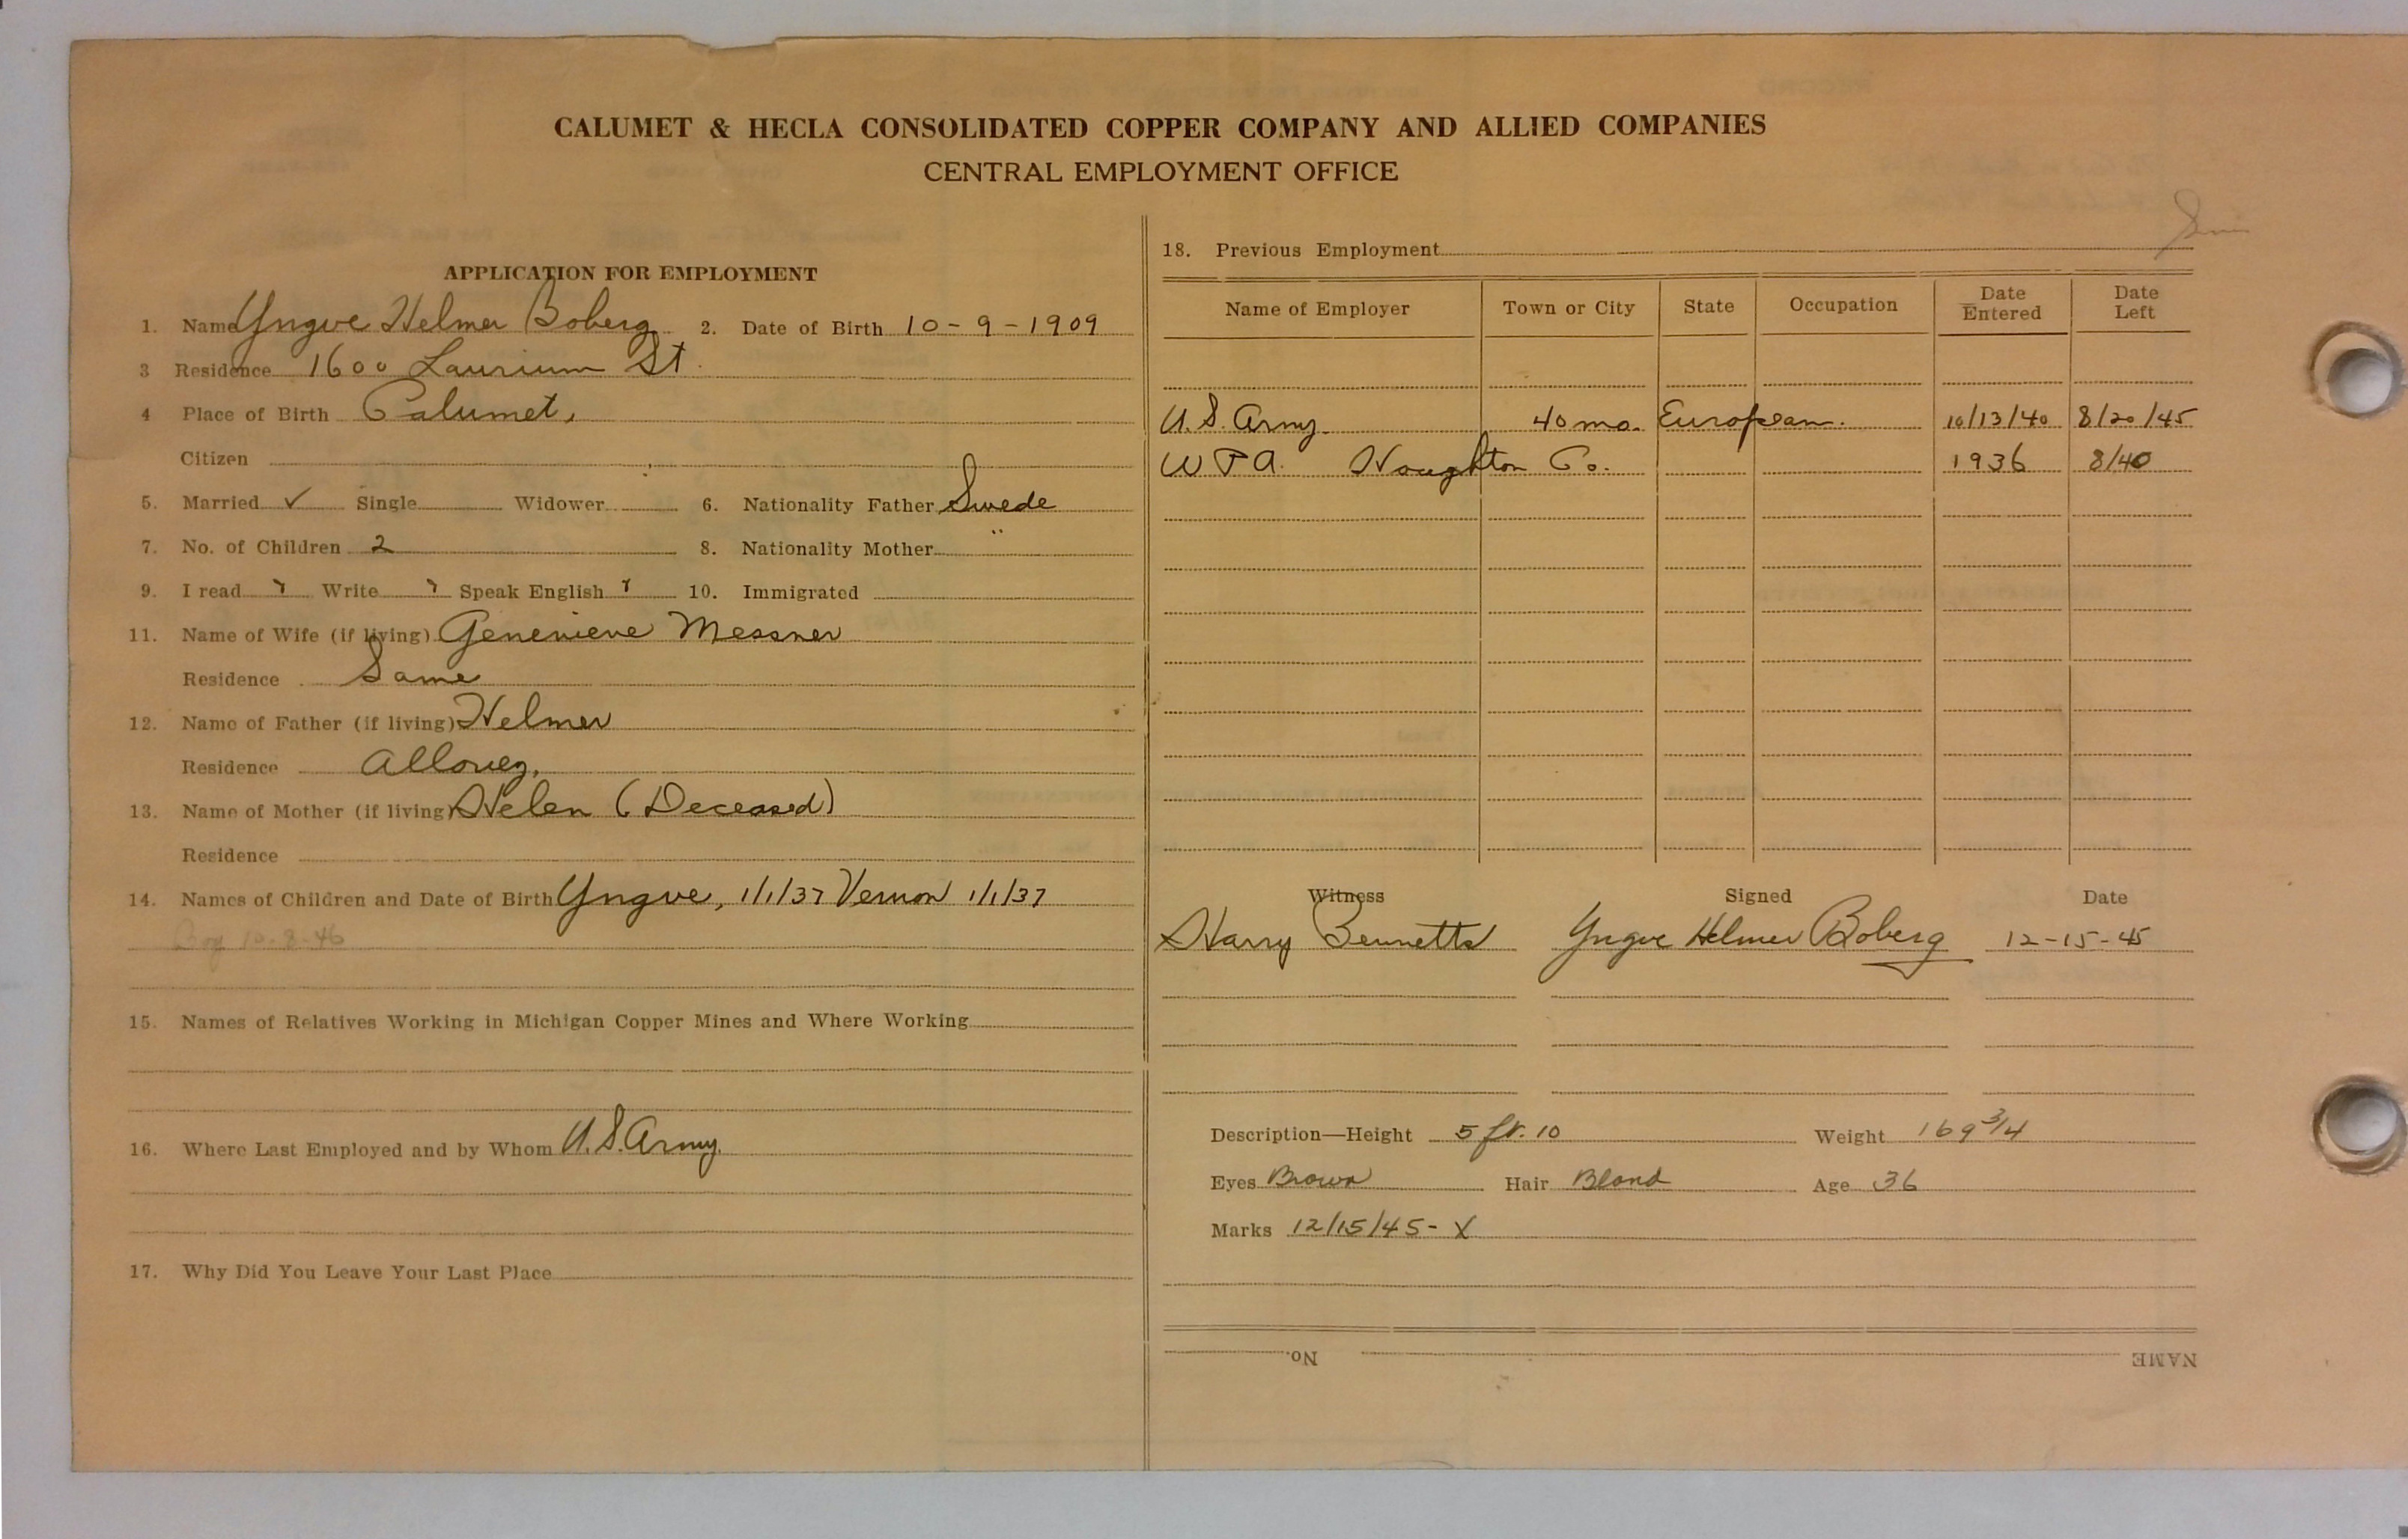 CALUMET & HECLA CONSOLIDATED COPPER COMPANY AND ALLIED COMPANIES
CENTRAL EMPLOYMENT OFFICE
APPLICATION FOR EMPLOYMENT
1. Name Yngve Helmer Boberg 2. Date of Birth 10-9-1909
3 Residence 1600 Laurium St.
4 Place of Birth Calumet,
Citizen
5. Married ✓ Single Widower 6. Nationality Father Swede
7. No. of Children 2 8. Nationality Mother "
9. I read Write Speak English 10. Immigrated
11. Name of Wife (if living) Genevieve Messner
Residence Same
12. Name of Father (if living) Helmer
Residence Allouez,
13. Name of Mother (if living) Helen (Deceased)
Residence
14. Names of Children and Date of Birth Yngve, 1/1/37 Vernon 1/1/37
Boy 10-8-46
15. Names of Relatives Working in Michigan Copper Mines and Where Working
16. Where Last Employed and by Whom U.S. Army.
17. Why Did You Leave Your Last Place
18. Previous Employment
Name of Employer Town or City State Occupation Date Entered Date Left
U.S. Army. 40 mo. European. 10/13/40 8/20/45
W P A. Houghton Co. 1936 8/40
Witness Signed Date
Harry Bennetts Yngve Helmer Boberg 12-15-45
Description—Height 5 ft. 10 Weight 169 3/4
Eyes Brown Hair Blond Age 36
Marks 12/15/45- X
No. NAME